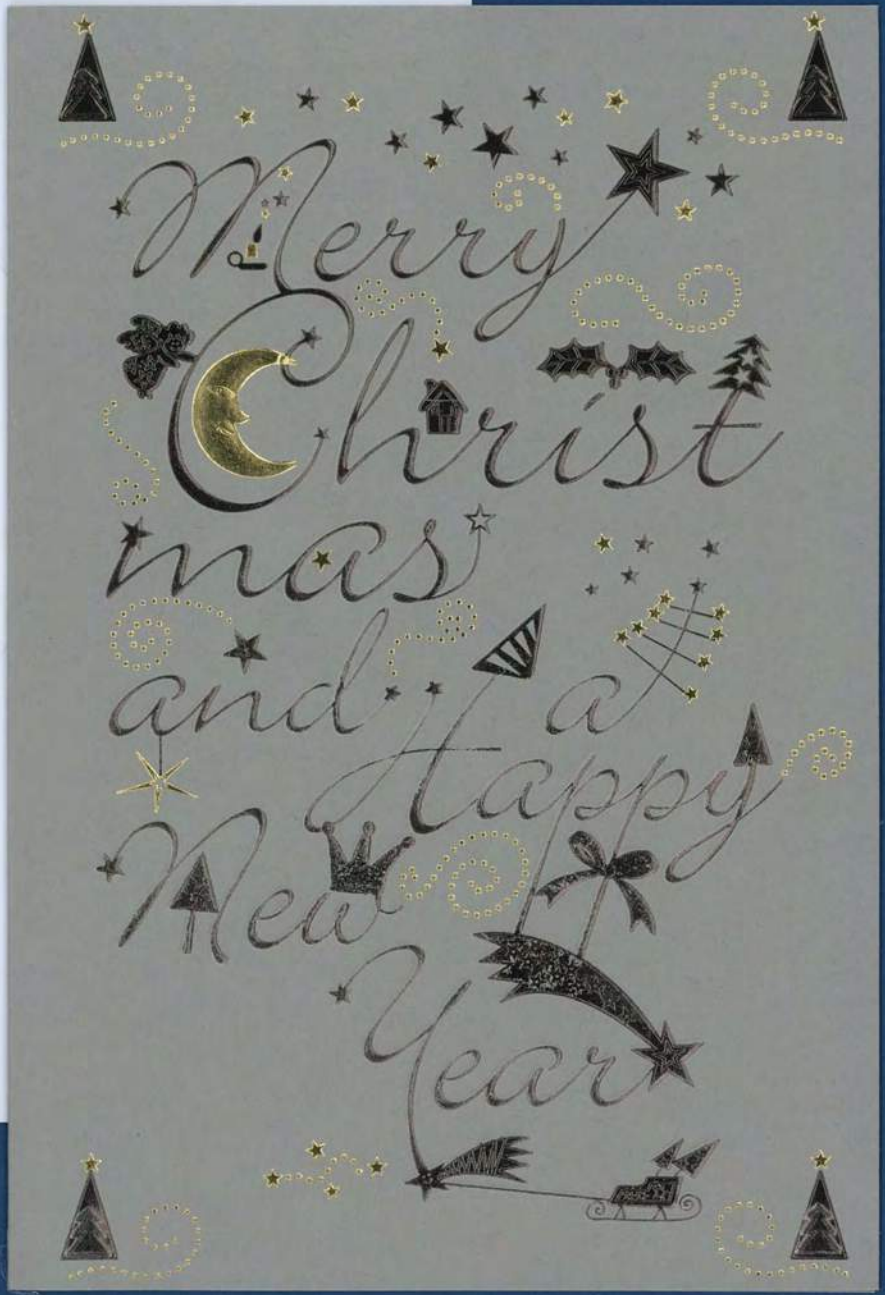 Merry
Christ
mas
and a
Happy
New
Year